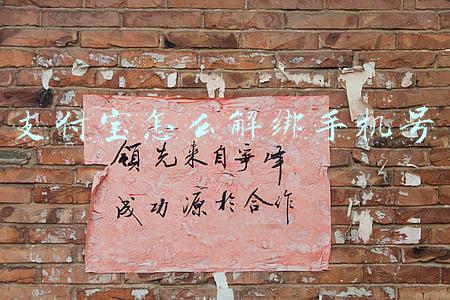 支付宝怎么解绑手机号
领先来自争峰
成功源於合作